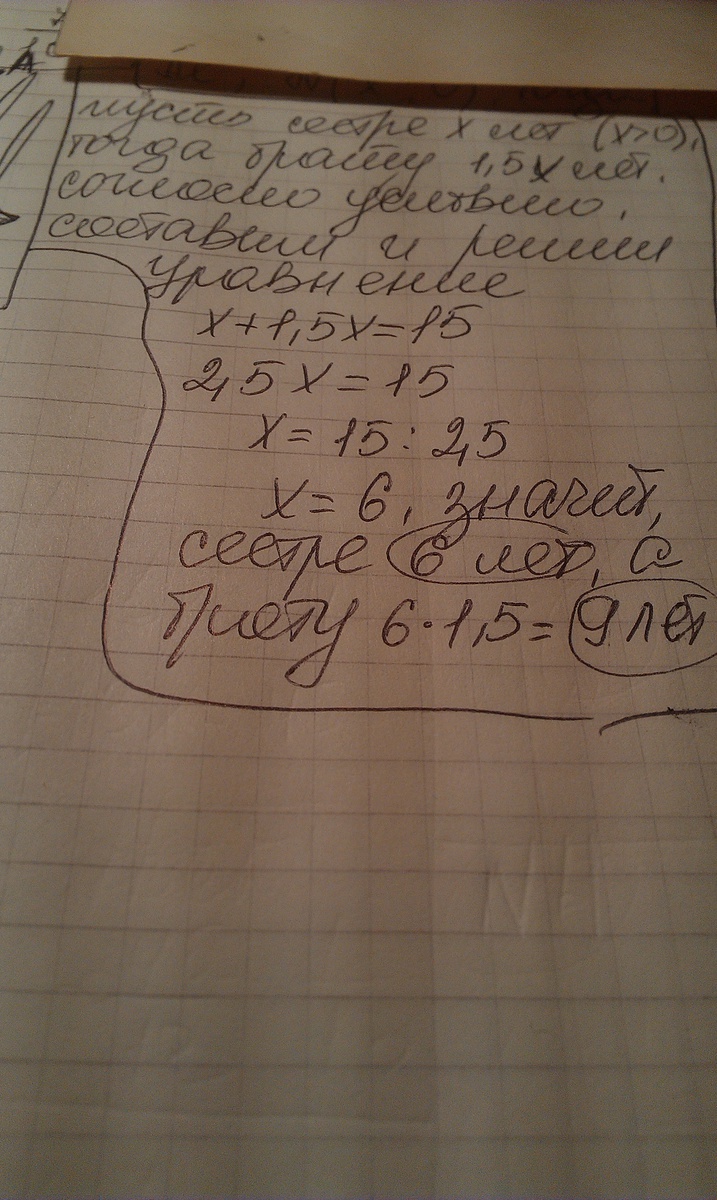 пусть сестре x лет (x>0),
тогда брату 1,5x лет.
согласно условию,
составим и решим
уравнение
x+1,5x=15
2,5x=15
x=15:2,5
x=6, значит,
сестре 6 лет, а
брату 6·1,5=9 лет